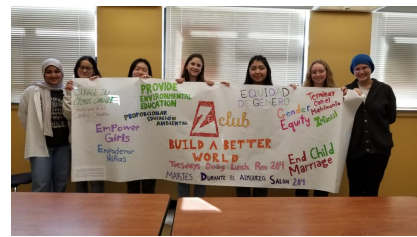 PROVIDE
ENVIRONMENTAL
EDUCATION
PROPORCIONAR
EDUCACIÓN
AMBIENTAL
EmPower
Girls
Empoderar
Niñas
Z club
BUILD A BETTER
WORLD
Tuesdays During Lunch Rm 204
MARTES DURANTE EL ALMUERZO, SALON 204
EQUIDAD
DE GÉNERO
Gender
Equity
Terminar
Con el
Matrimonio
Infantil
End Child
Marriage